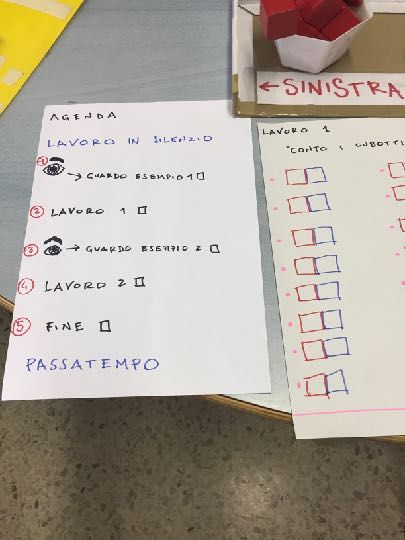 ← SINISTRA
AGENDA
LAVORO IN SILENZIO
1 → GUARDO ESEMPIO 1
2 LAVORO 1
3 → GUARDO ESEMPIO 2
4 LAVORO 2
5 FINE
PASSATEMPO
LAVORO 1
"CONTO I CUBOTTI